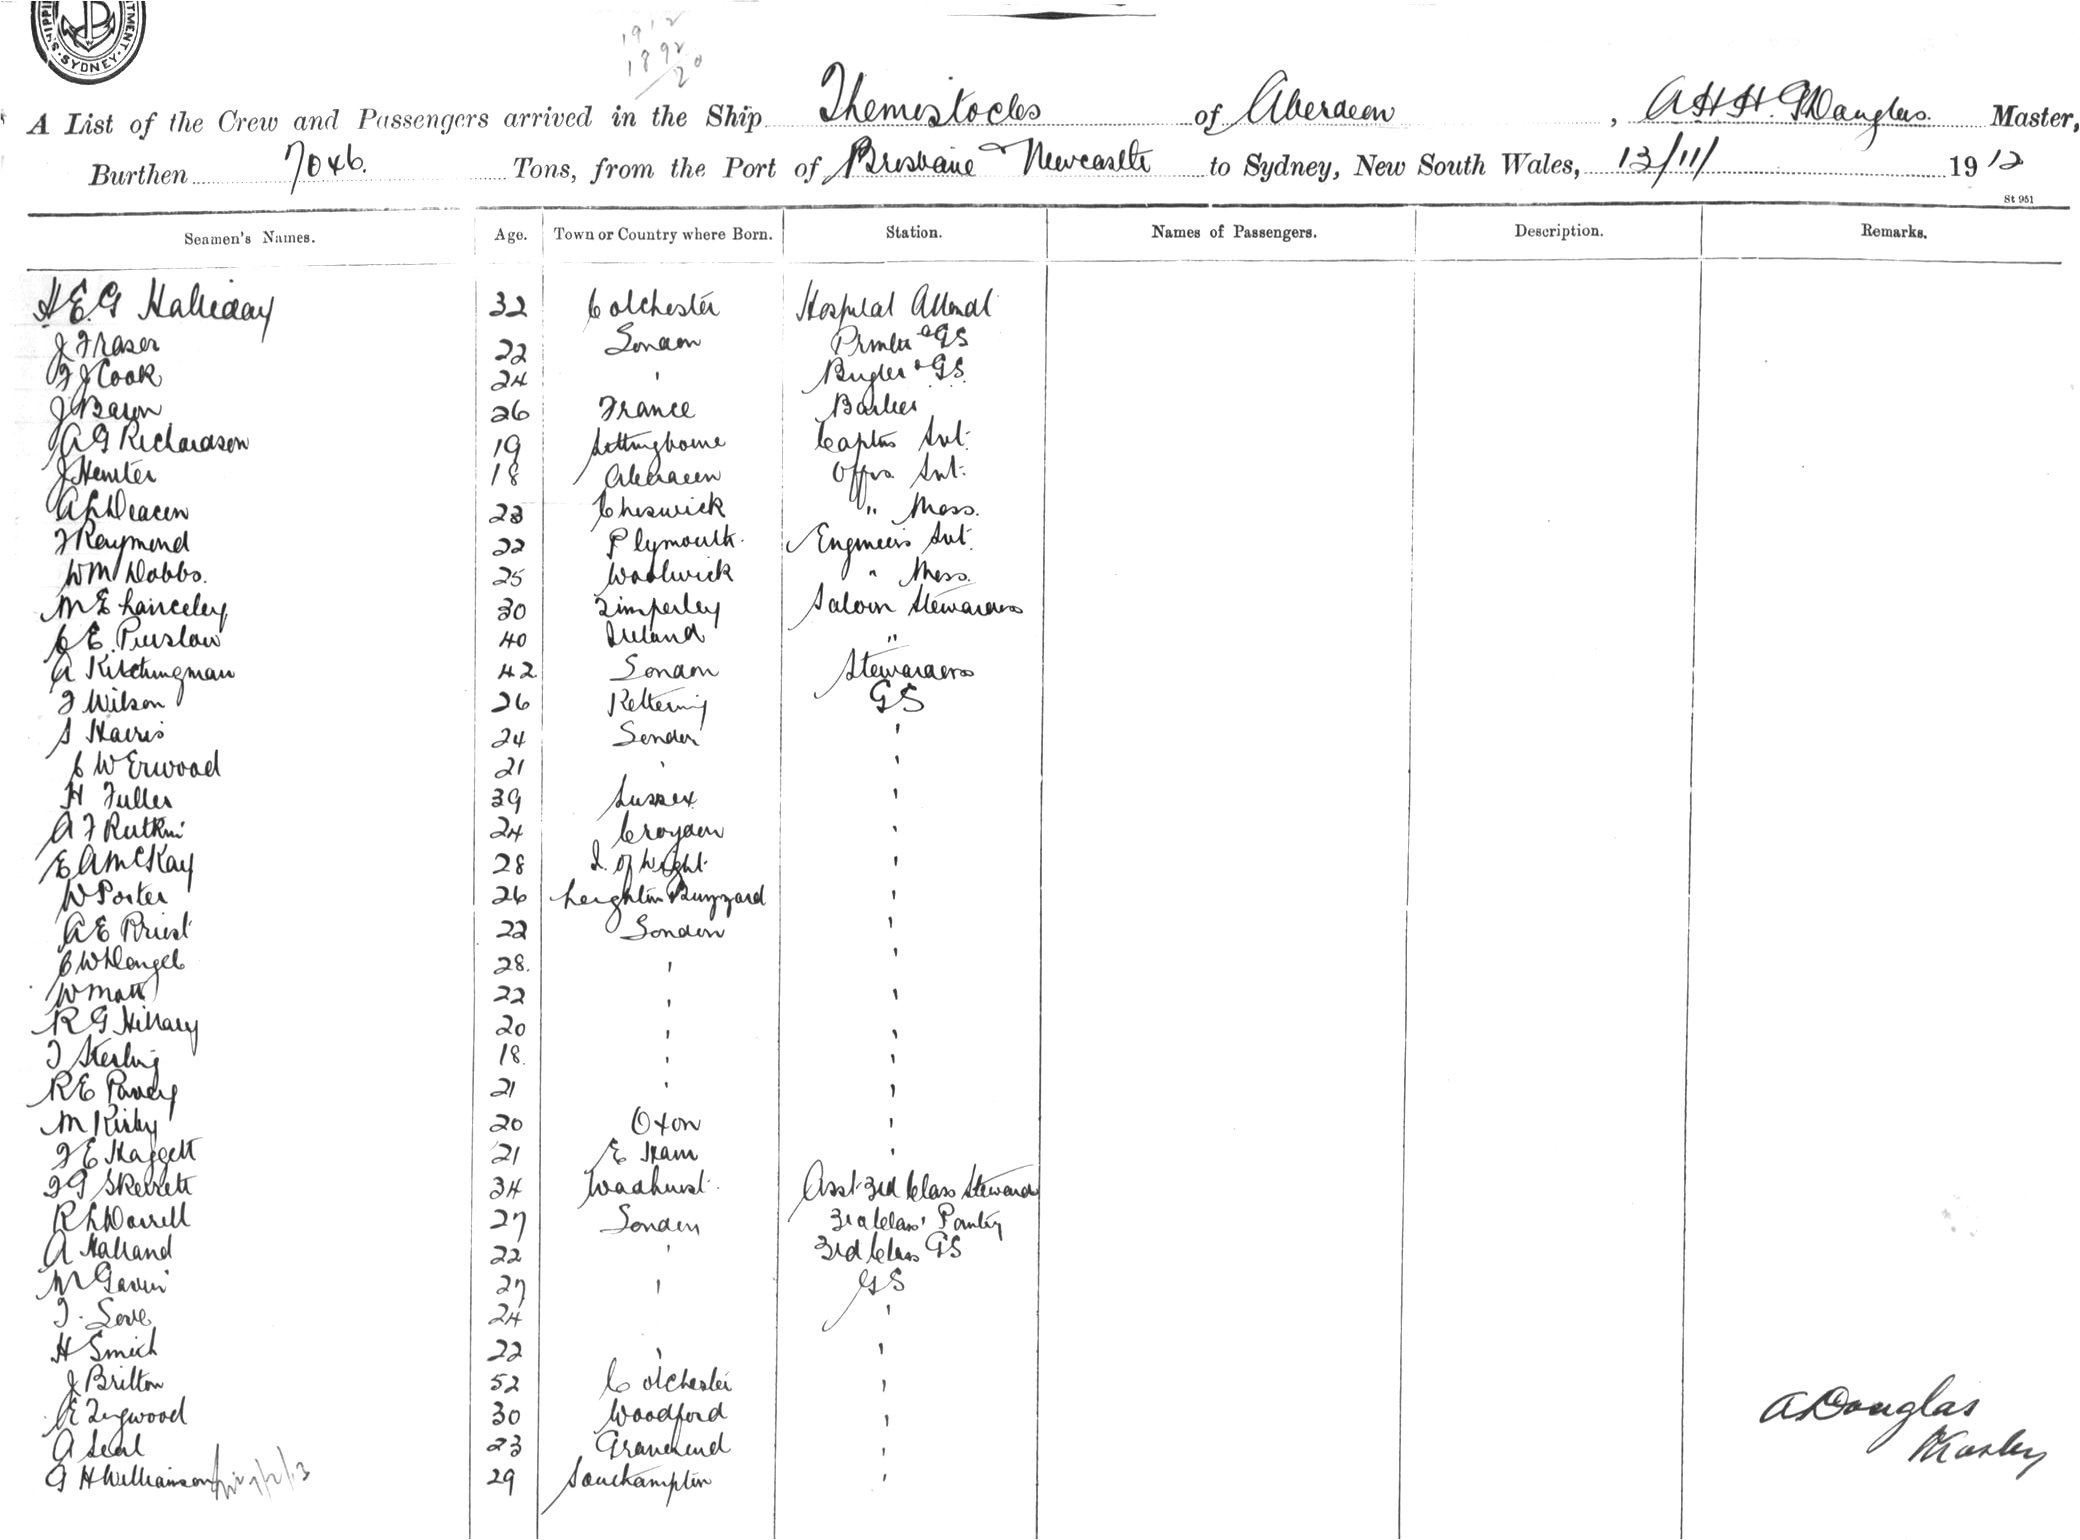 SHIPPI TMENT. SYDNEY
1912
1892
20
A List of the Crew and Passengers arrived in the Ship Themistocles of Aberdeen , A H H G Douglas Master,
Burthen 7046. Tons, from the Port of Brisbane & Newcastle to Sydney, New South Wales, 13/11/ 1912
St 951
Seamen's Names. Age. Town or Country where Born. Station. Names of Passengers. Description. Remarks.
H E G Halliday 32 Colchester Hospital Attendt
J Fraser 22 London Printer & GS
F J Cook 24 ' Bugler & GS
J Baron 26 France Barber
A G Richardson 19 Sittingborne Captns Svt.
J Hunter 18 Aberdeen Offrs Svt.
A L Deacon 23 Cheswick " Mess.
F Raymond 22 Plymouth. Engineers Svt.
W M Dobbs. 25 Woolwick " Mess.
M E Lanceley 30 Timperley Saloon Stewardess
C E. Purslow 40 Ireland "
A Kitchingman 42 London Stewardess
F Wilson 26 Kettering GS
S Harris 24 London '
C W Erwood 21 ' '
H Fuller 39 Sussex '
A F Rutkin 24 Croydon '
E A McKay 28 I. of Wight '
W Porter 26 Leighton Buzzard '
A E Priest 22 London '
C W 28. ' '
W Mott 22 ' '
R G Hillary 20 ' '
T Sterling 18. ' '
R E Pavey 21 ' '
M Kirby 20 Oxon '
F E Haggett 21 E Ham '
F G Skerrett 34 Wadhurst. Asst 3rd Class Steward
R L Dorrell 27 London 3rd Class Pantry
A Holland 22 ' 3rd Class GS
M Gavin 27 ' GS
T. Love 24 '
H Smith 22 ' '
J Britton 52 Colchester '
E Lingwood 30 Woodford '
A Seal 23 Gravesend '
G H Williamson 29 Southampton '
A Douglas